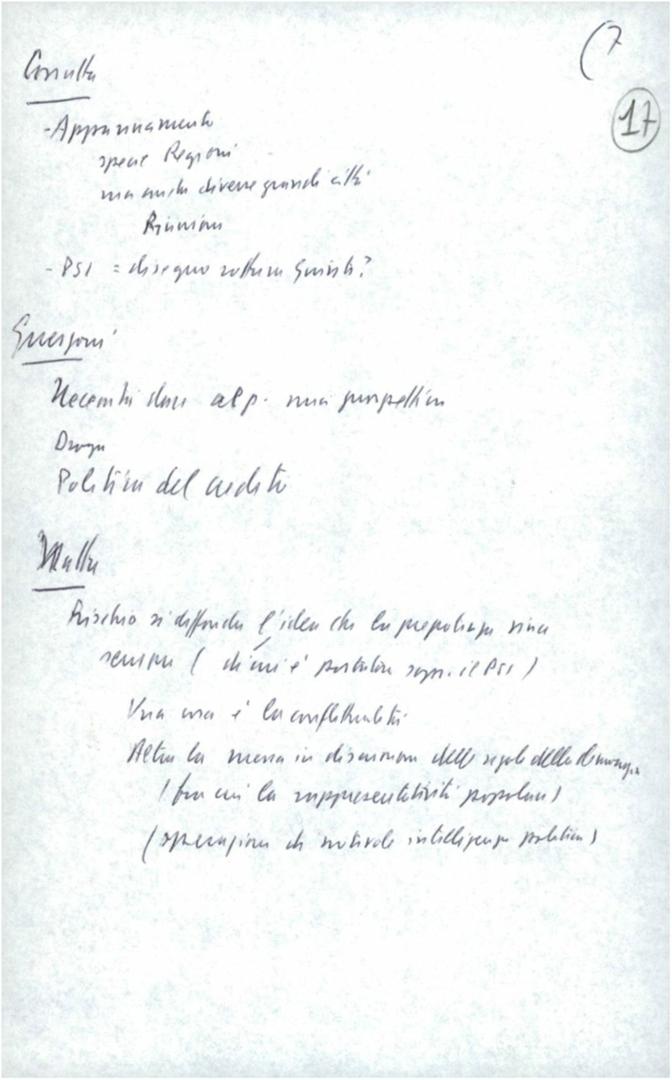 (7
17
Consulta
- Appannamento
specie Regioni
ma anche diverse grandi città
Riunione
- PSI = disegno rottura Giunte?
Guerzoni
Necessità dare al p. una prospettiva
Droga
Politica del credito
Rischio si diffonda l'idea che la prepotenza sia
(di cui è portatore sopr. il PSI)
Una cosa è la conflittualità
Altra la messa in discussione delle regole della democrazia
(fra cui la rappresentatività popolare)
(operazione di notevole intelligenza politica)